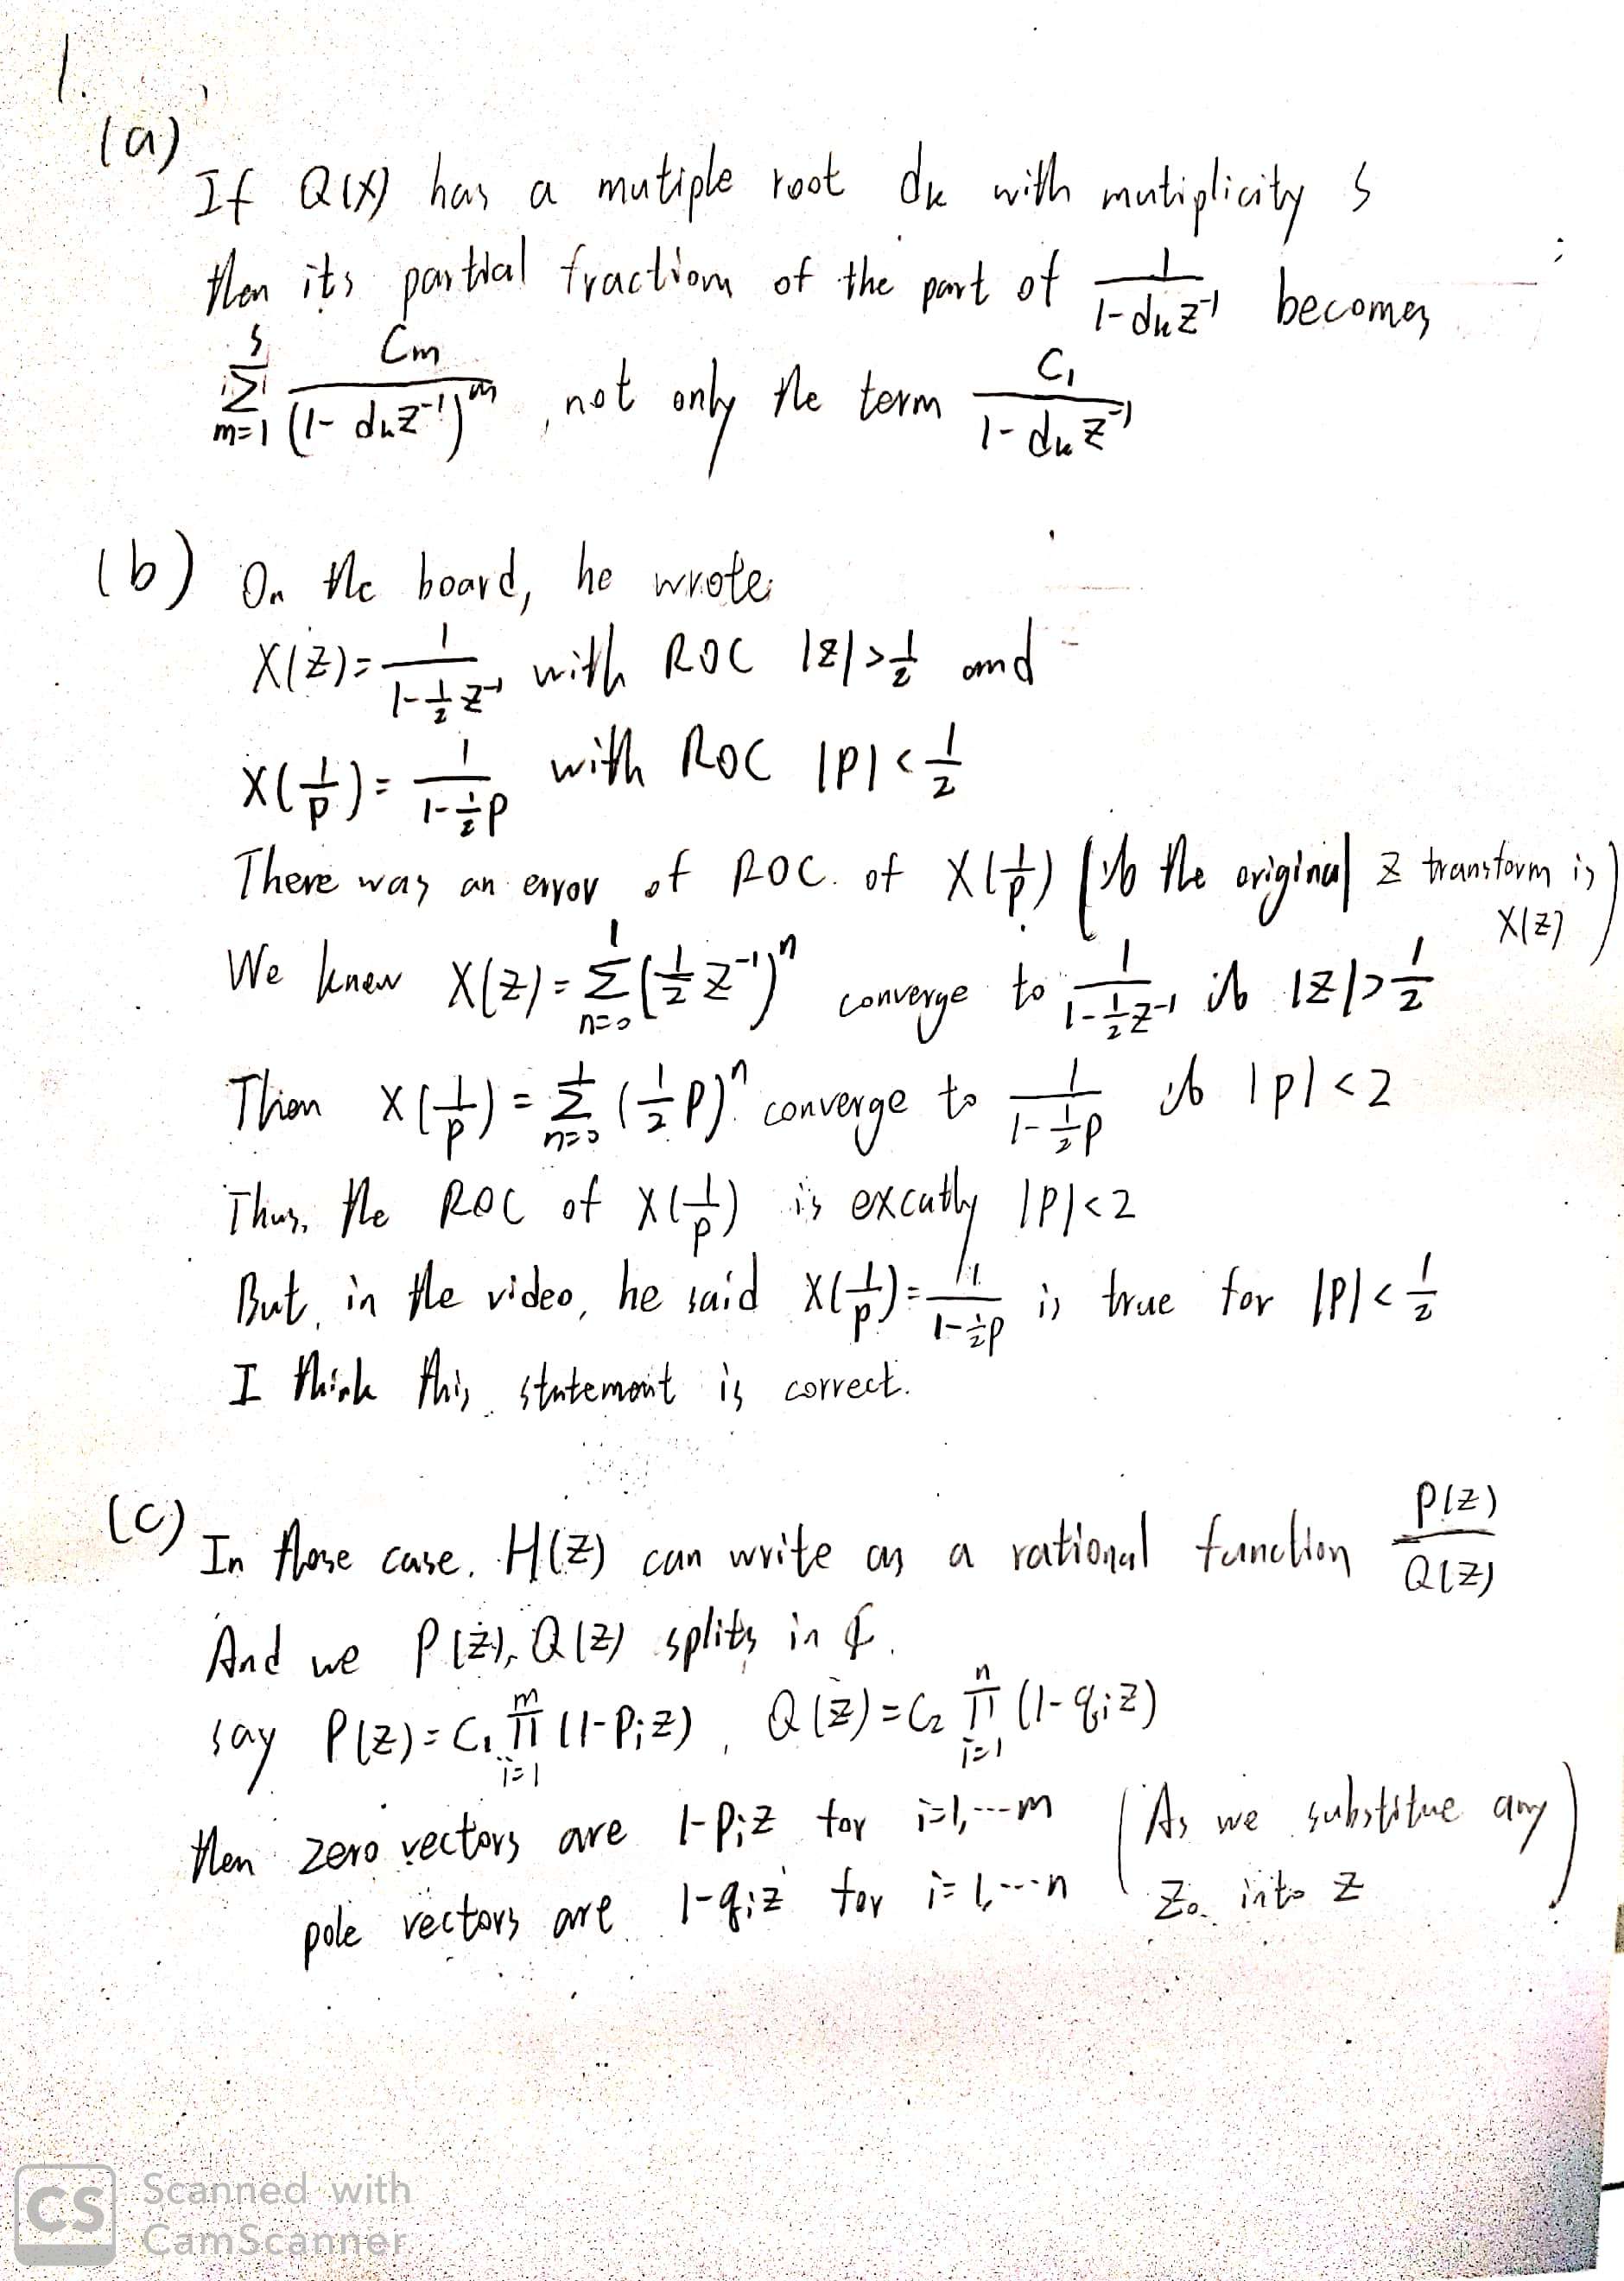 1.
(a)
If Q(X) has a mutiple root dₖ with mutiplicity s
then its partial fraction of the part of 1/(1-dₖz⁻¹) becomes
Σ_{m=1}^{s} Cₘ/(1-dₖz⁻¹)ᵐ , not only the term C₁/(1-dₖz⁻¹)
(b) On the board, he wrote
X(z)= 1/(1-½z⁻¹) with ROC |z|>½ and
X(1/p)= 1/(1-½p) with ROC |p|<½
There was an error of ROC of X(1/p) (if the original z transform is X(z))
We knew X(z)= Σ_{n=0}^{1} (½z⁻¹)ⁿ converge to 1/(1-½z⁻¹) if |z|>½
Then X(1/p)= Σ_{n=0}^{1} (½p)ⁿ converge to 1/(1-½p) if |p|<2
Thus, the ROC of X(1/p) is excatly |p|<2
But, in the video, he said X(1/p)= 1/(1-½p) is true for |p|<½
I think this statement is correct.
(c) In those case, H(z) can write as a rational function P(z)/Q(z)
And we P(z), Q(z) splits in ℂ.
say P(z)=C₁ ∏_{i=1}^{m} (1-pᵢz), Q(z)=C₂ ∏_{i=1}^{n} (1-qᵢz)
then zero vectors are 1-pᵢz for i=1,…m (As we substitue any
pole vectors are 1-qᵢz for i=1,…n z₀ into z)
CS Scanned with
CamScanner